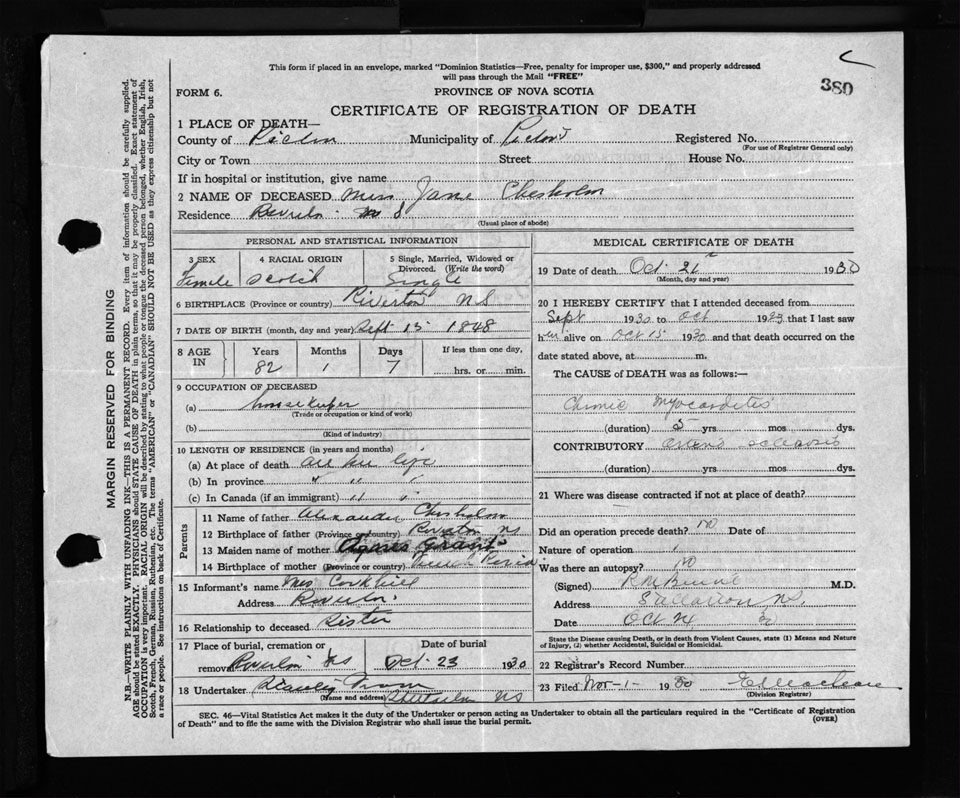 This form if placed in an envelope, marked "Dominion Statistics—Free, penalty for improper use, $300," and properly addressed
will pass through the Mail "FREE"
380
FORM 6.
PROVINCE OF NOVA SCOTIA
CERTIFICATE OF REGISTRATION OF DEATH
1 PLACE OF DEATH—
County of Pictou Municipality of Pictou Registered No.
(For use of Registrar General only)
City or Town Street House No.
If in hospital or institution, give name
2 NAME OF DECEASED Miss Jane Chesholm
Residence Riverton N S
(Usual place of abode)
PERSONAL AND STATISTICAL INFORMATION
3 SEX 4 RACIAL ORIGIN 5 Single, Married, Widowed or Divorced. (Write the word)
Female Scotch Single
6 BIRTHPLACE (Province or country) Riverton NS
7 DATE OF BIRTH (month, day and year) Sept 15 1848
8 AGE IN Years Months Days If less than one day,
82 1 7 hrs. or min.
9 OCCUPATION OF DECEASED
(a) housekeeper
(Trade or occupation or kind of work)
(b)
(Kind of industry)
10 LENGTH OF RESIDENCE (in years and months)
(a) At place of death all her life
(b) In province " " "
(c) In Canada (if an immigrant) " "
Parents
11 Name of father Alexander Chesholm
12 Birthplace of father (Province or country) Riverton NS
13 Maiden name of mother Agnes Grant
14 Birthplace of mother (Province or country)
15 Informant's name Mrs Corkhill
Address Riverton
16 Relationship to deceased Sister
17 Place of burial, cremation or Date of burial
removal Riverton NS Oct 23 1930
18 Undertaker
(Name and address) NS
MEDICAL CERTIFICATE OF DEATH
19 Date of death Oct 21 1930
(Month, day and year)
20 I HEREBY CERTIFY that I attended deceased from
Sept 1930 to Oct 1923 that I last saw
her alive on Oct 15 1930 and that death occurred on the
date stated above, at m.
The CAUSE of DEATH was as follows:—
Chronic Myocarditis
(duration) 5 yrs mos dys.
CONTRIBUTORY Arterio sclerosis
(duration) yrs. mos. dys.
21 Where was disease contracted if not at place of death?
Did an operation precede death? No Date of
Nature of operation
Was there an autopsy? No
(Signed) M.D.
Address Stellarton N.S.
Date Oct 24
State the Disease causing Death, or in death from Violent Causes, state (1) Means and Nature
of Injury, (2) whether Accidental, Suicidal or Homicidal.
22 Registrar's Record Number
23 Filed Nov-1- 1930
(Division Registrar)
SEC. 46—Vital Statistics Act makes it the duty of the Undertaker or person acting as Undertaker to obtain all the particulars required in the "Certificate of Registration
of Death" and to file the same with the Division Registrar who shall issue the burial permit.
(OVER)
MARGIN RESERVED FOR BINDING
N.B.—WRITE PLAINLY WITH UNFADING INK—THIS IS A PERMANENT RECORD. Every item of information should be carefully supplied.
AGE should be stated EXACTLY. PHYSICIANS should STATE CAUSE OF DEATH in plain terms, so that it may be properly classified. Exact statement of
OCCUPATION is very important. RACIAL ORIGIN will be described by stating to what people or tongue the deceased person belonged, whether English, Irish,
Scotch, French, German, Russian, Ruthenian, etc. The terms "AMERICAN" or "CANADIAN" SHOULD NOT BE USED as they express citizenship but not
a race or people. See instructions on back of Certificate.